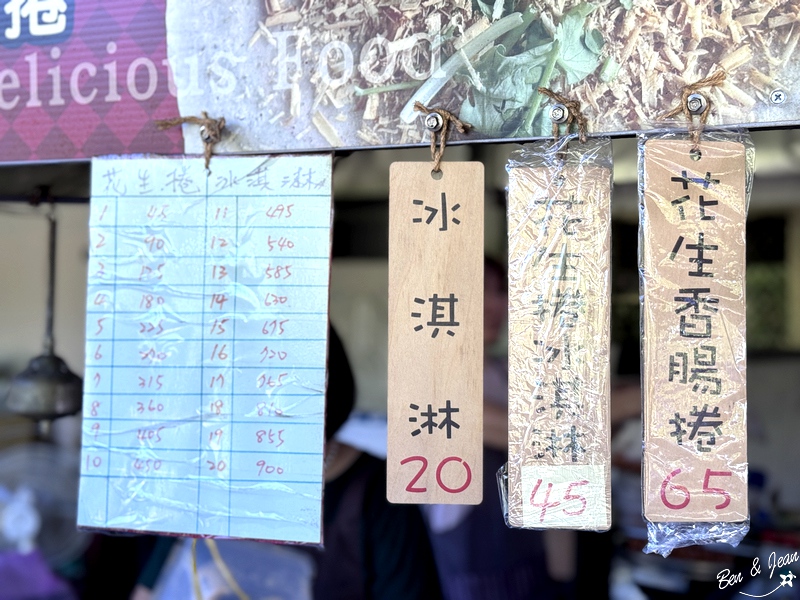 捲
elicious Food
花生捲冰淇淋
1 45 11 495
2 90 12 540
3 135 13 585
4 180 14 630
5 225 15 675
6 270 16 720
7 315 17 765
8 360 18 810
9 405 19 855
10 450 20 900
冰淇淋
20
花生捲冰淇淋
45
花生香腸捲
65
Ben & Jean